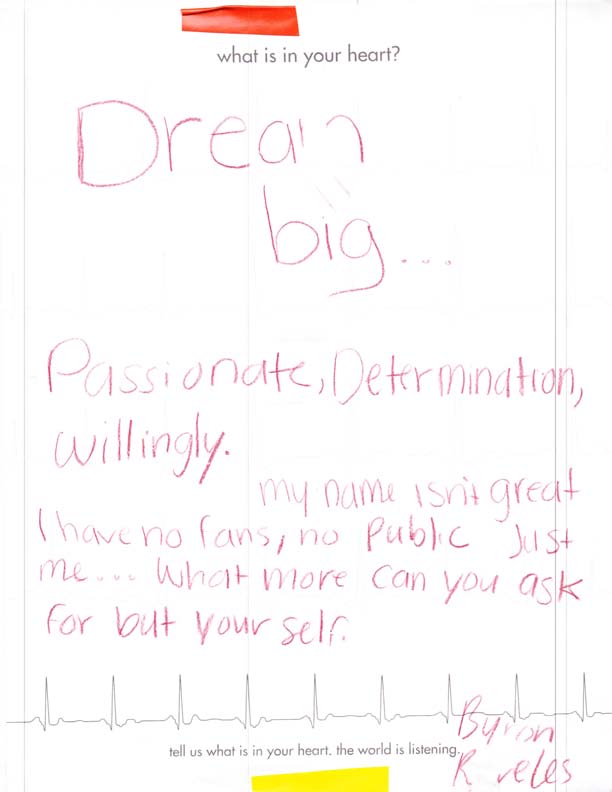 what is in your heart?
Dream
big...
Passionate, Determination,
willingly.
my name isn't great
I have no fans, no public just
me.... What more can you ask
for but your self.
tell us what is in your heart. the world is listening.
Byron
R veles